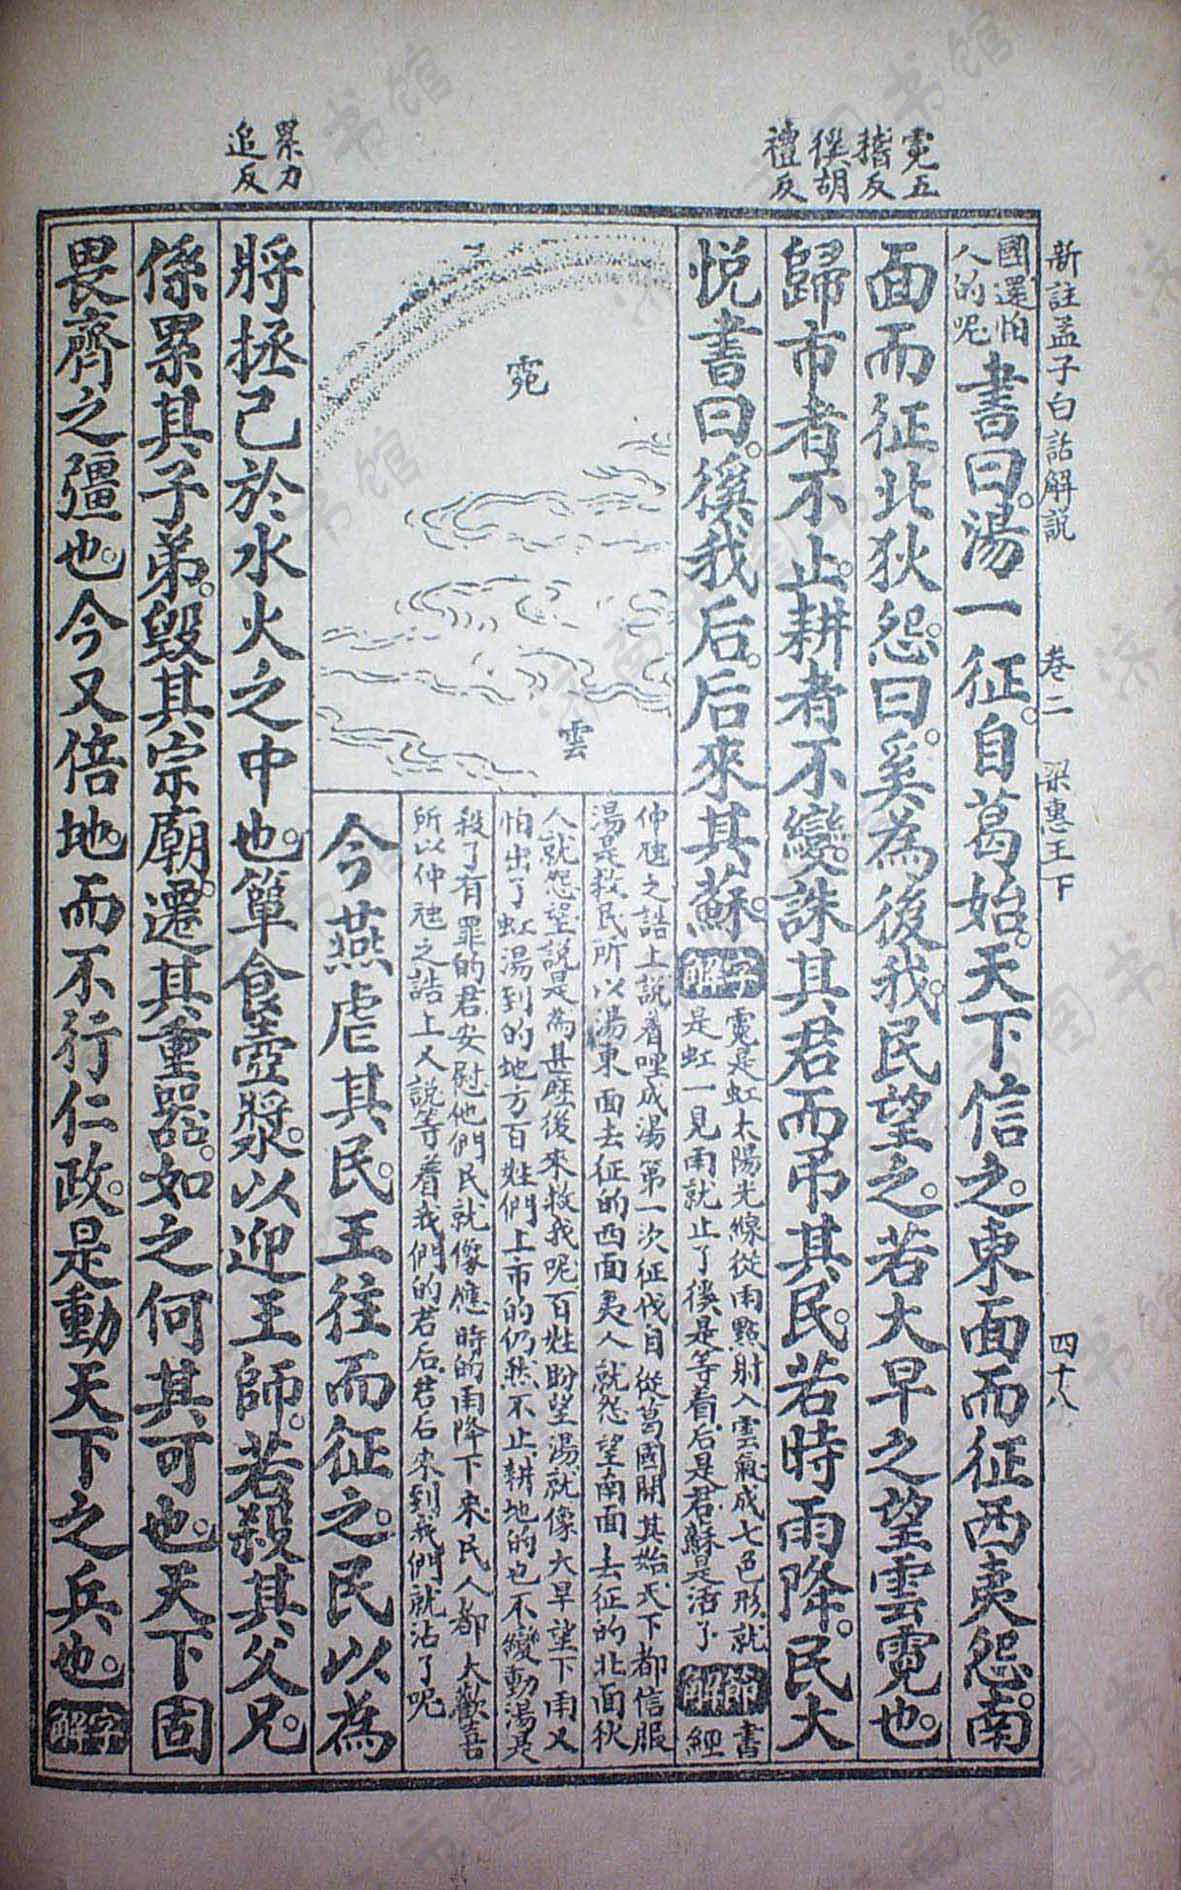 新註孟子白話解說　卷二　梁惠王下　四十八
霓五
稽反
徯胡
禮反
累力
追反
國還怕
人的呢
書曰。湯一征。自葛始。天下信之。東面而征西夷怨。南
面而征北狄怨。曰。奚為後我。民望之。若大旱之望雲霓也。
歸市者不止。耕者不變。誅其君而吊其民。若時雨降。民大
悅書曰。徯我后。后來其蘇。
字解
霓是虹太陽光線從雨點射入雲氣成七色形就
是虹一見雨就止了徯是等着后是君蘇是活了
節解
書
經
仲虺之誥上說着哩成湯第一次征伐自從葛國開其始天下都信服
湯是救民所以湯東面去征的西面夷人就怨望南面去征的北面狄
人就怨望說是為甚麼後來救我呢百姓盼望湯就像大旱望下雨又
怕出了虹湯到的地方百姓們上市的仍然不止耕地的也不變動湯是
殺了有罪的君安慰他們民就像應時的雨降下來民人都大歡喜
所以仲虺之誥上又說等着我們的君后君后來到我們就沾了呢
霓
雲
今燕虐其民。王往而征之。民以為
將拯己於水火之中也。簞食壺漿。以迎王師。若殺其父兄。
係累其子弟。毀其宗廟。遷其重器。如之何其可也。天下固
畏齊之彊也。今又倍地。而不行仁政。是動天下之兵也。
字解